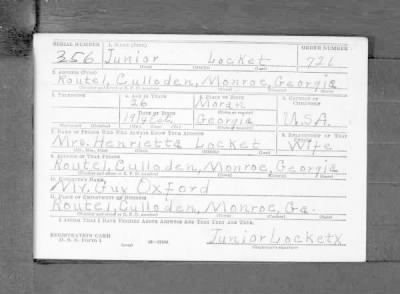 SERIAL NUMBER 1. NAME (Print) ORDER NUMBER
356 Junior Locket 726
(First) (Middle) (Last)
2. ADDRESS (Print)
Route1, Culloden, Monroe, Georgia
3. TELEPHONE 4. AGE IN YEARS 5. PLACE OF BIRTH 6. COUNTRY OF CITIZENSHIP
26 Moran
DATE OF BIRTH (Town or county)
Georgia U.S.A.
(Mo.) (Day) (Yr.) (State or country)
7. NAME OF PERSON WHO WILL ALWAYS KNOW YOUR ADDRESS 8. RELATIONSHIP OF THAT PERSON
Mrs. Henrietta Locket Wife
(Mr., Mrs., Miss) (First) (Middle) (Last)
9. ADDRESS OF THAT PERSON
Route1, Culloden, Monroe Georgia
10. EMPLOYER'S NAME
Mr. Guy Oxford
11. PLACE OF EMPLOYMENT OR BUSINESS
Route1, Culloden, Monroe, Ga.
I AFFIRM THAT I HAVE VERIFIED ABOVE ANSWERS AND THAT THEY ARE TRUE.
REGISTRATION CARD
D. S. S. Form 1 Junior Locket X
(Registrant's signature)